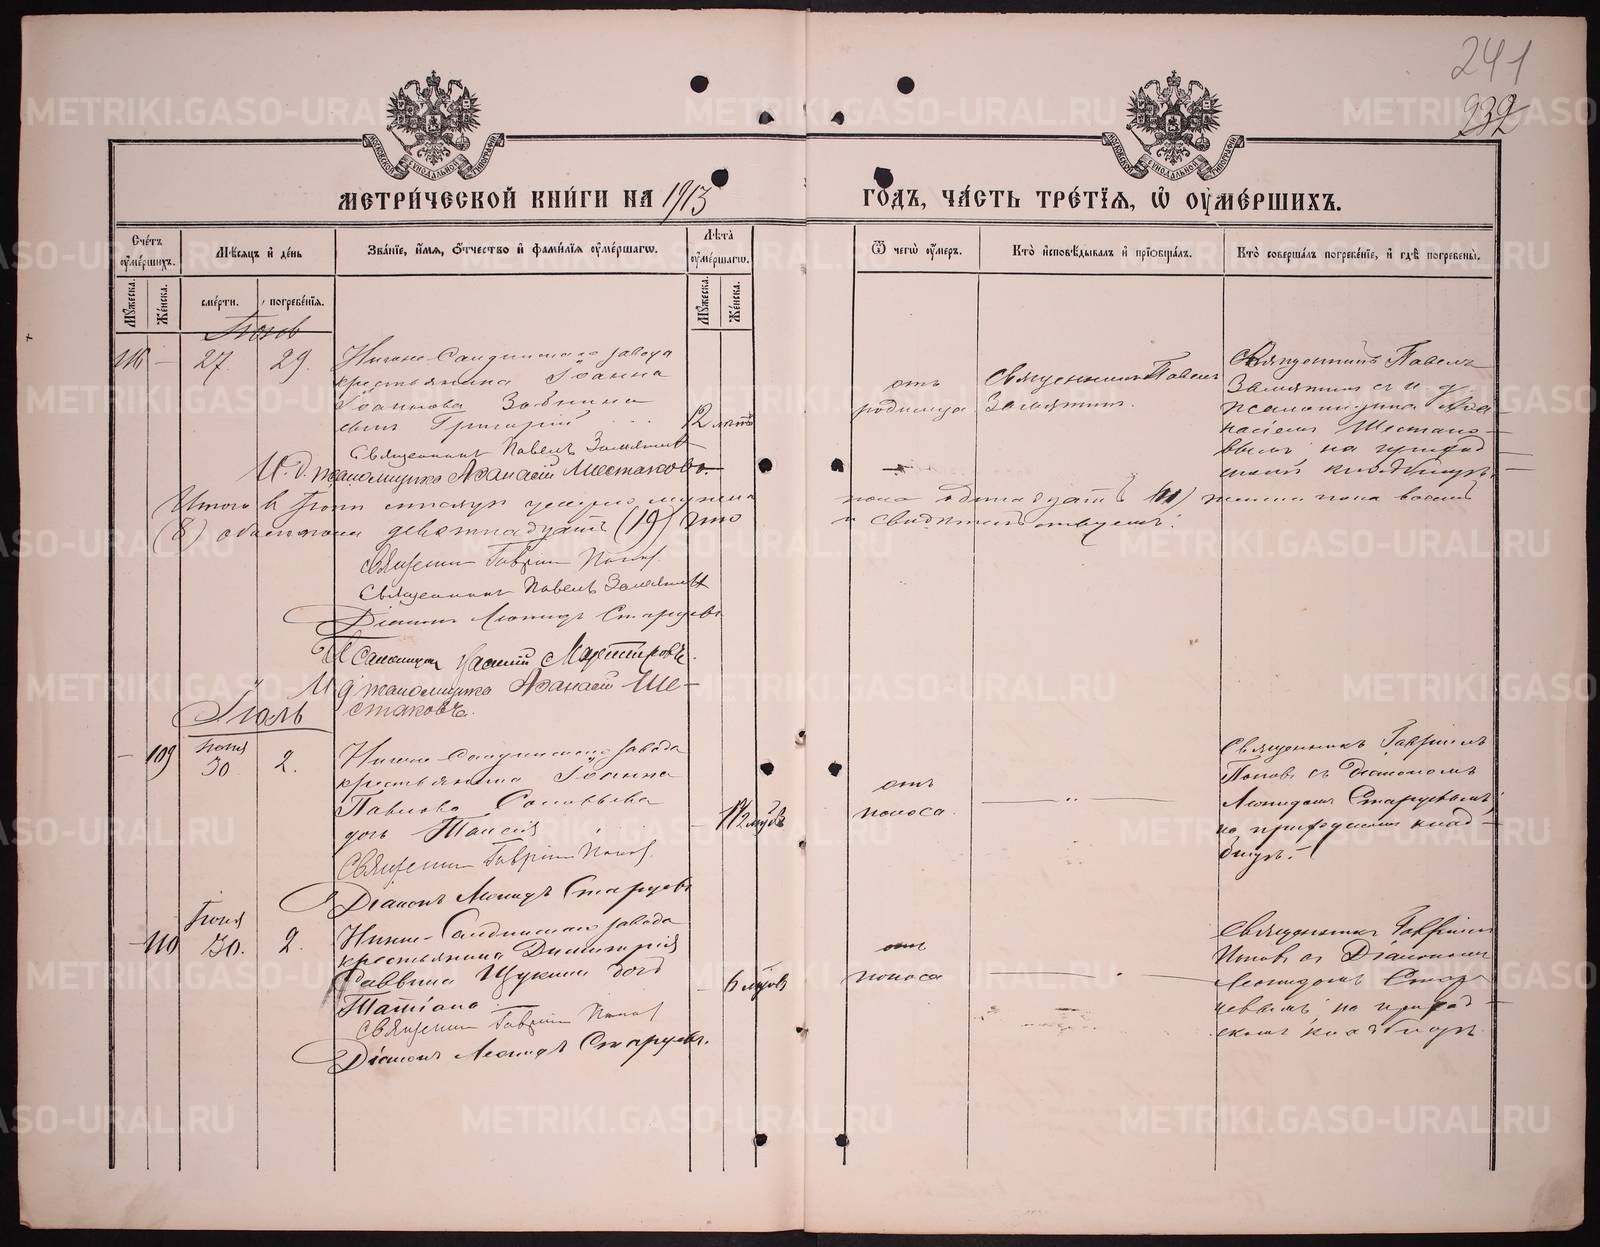 241
232
МЕТРИ́ЧЕСКОЙ КНИ́ГИ НА 1913
ГО́ДЪ, ЧА́СТЬ ТРЕ́ТЇЯ, Ѡ҆ ОУМЕ́РШИХЪ.
Сче́тъ оуме́ршихъ.
Мѣ́сяцъ и де́нь
Зва́нїе, и́мя, ѻ́тчество и фами́лїя оуме́ршагѡ.
Лѣ́та оуме́ршагѡ.
Ѿ чегѡ̀ оу́меръ.
Кто̀ исповѣ́дывалъ и прїѡбща́лъ.
Кто̀ соверша́лъ погребе́нїе, и гдѣ̀ погребены̀.
Му́жеска.
Же́нска.
сме́рти.
погребе́нїя.
Му́жеска.
Же́нска.
Іюнь
116 — 27. 29.
Нижне-Салдинскаго завода
крестьянина Іоанна
Іоаннова Зовнина
сынъ Григорій
12 лѣтъ
отъ
родимца
Священникъ Павелъ
Замятинъ.
Священникъ Павелъ
Замятинъ с и. д.
псаломщика Афа-
насіемъ Шестако-
вымъ на приход-
скомъ кладбищѣ.
Священникъ Павелъ Замятинъ
И. д. псаломщика Афанасій Шестаковъ.
Итого в Іюнѣ мѣсяцѣ умерло мужска
пола одинадцать (11) женска пола восемь
(8) обоего пола девятнадцать (19) что
и свидѣтельствуемъ:
Священникъ Гавріилъ Поповъ
Священникъ Павелъ Замятинъ
Діаконъ Леонидъ Старцевъ
Псаломщикъ
И д псаломщика Афанасій Ше-
стаковъ.
Іюль
— 109 Іюня 30 2.
Нижне-Салдинскаго завода
крестьянина Іоанна
Павлова Соловьева
дочь Таисія
1 1/2 мѣс.
отъ
поноса.
Священникъ Гавріилъ
Поповъ съ Діакономъ
Леонидомъ Старцевымъ
на приходскомъ клад-
бищѣ.
Священникъ Гавріилъ Поповъ
Діаконъ Леонидъ Старцевъ
— 110 Іюня 30. 2.
Нижне-Салдинскаго завода
крестьянина Димитрія
Саввина Щукина дочь
Татіана
6 мѣс.
отъ
поноса
Священникъ Гавріилъ
Поповъ съ Діакономъ
Леонидомъ Стар-
цевымъ, на приход-
скомъ кладбищѣ.
Священникъ Гавріилъ Поповъ
Діаконъ Леонидъ Старцевъ.